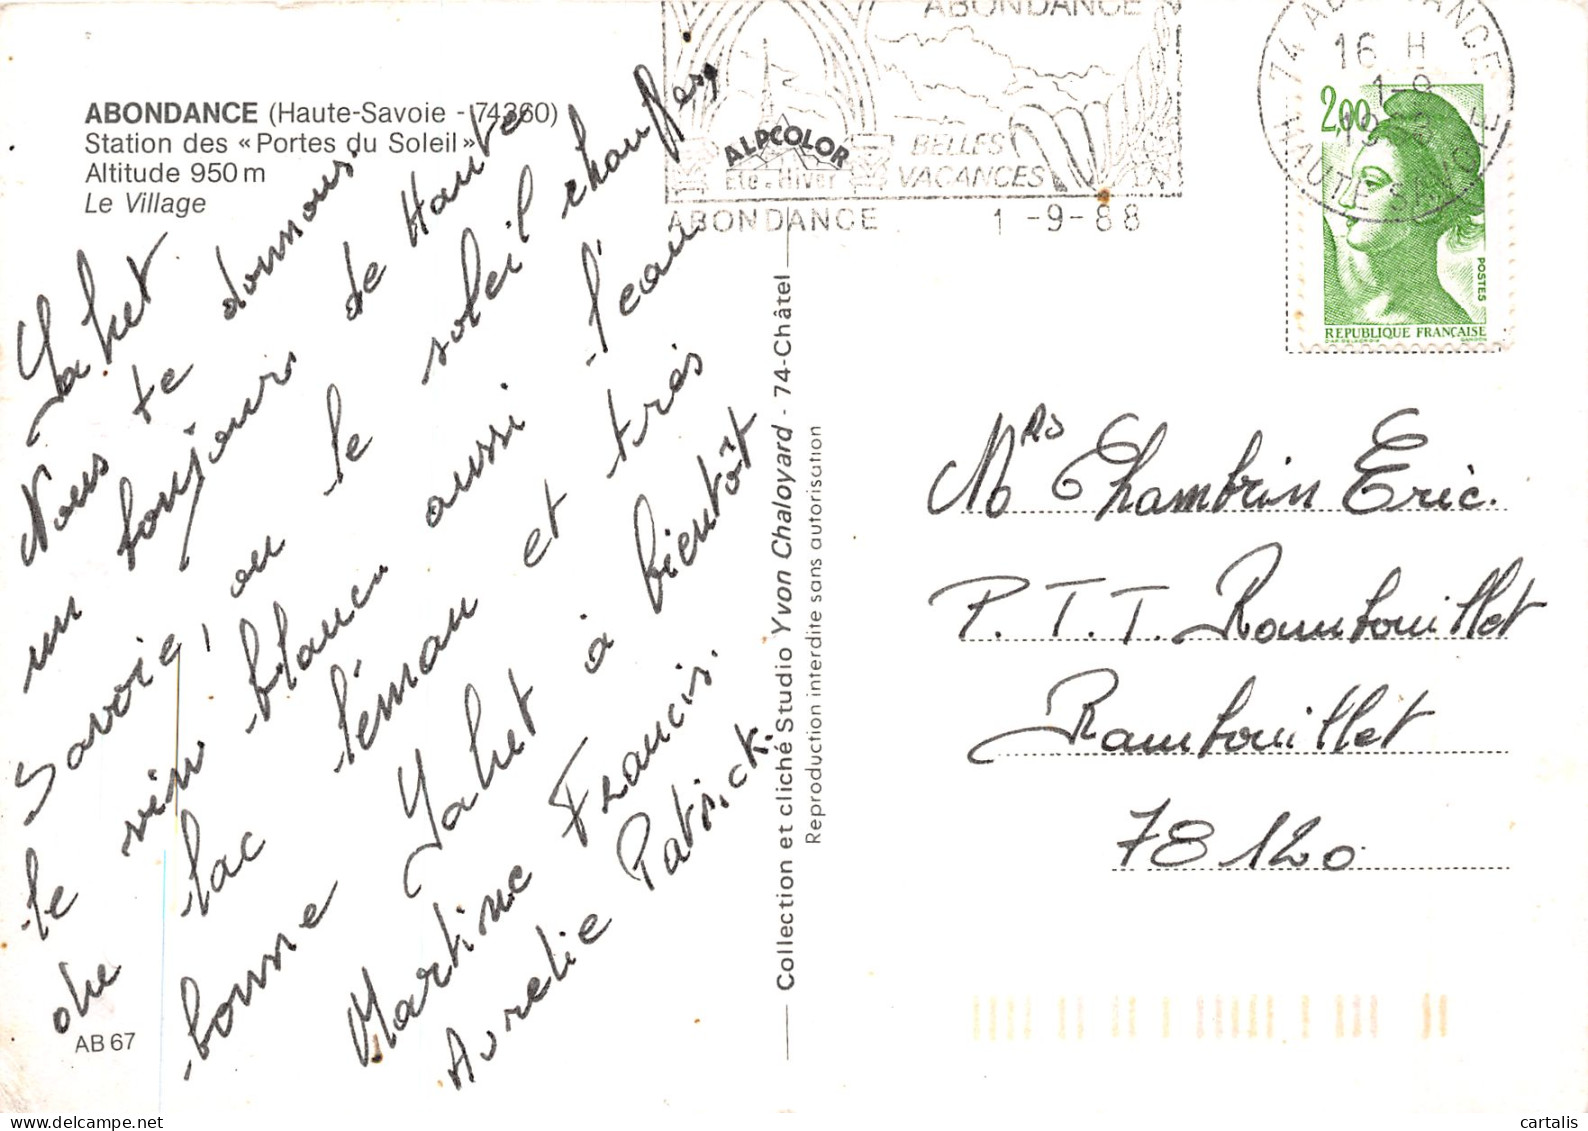 ABONDANCE (Haute-Savoie - 74360)
Station des « Portes du Soleil »
Altitude 950 m
Le Village
Yahet
Nous te donnons
un bonjour de Haute
Savoie, ou le soleil chauffe,
le vin blanc aussi l'eau
du lac léman et très
bonne Yahet à bientôt
Martine Francis.
Aurelie Patrick.
AB 67
Collection et cliché Studio Yvon Chaloyard - 74-Châtel
Reproduction interdite sans autorisation
ABONDANCE
ALPCOLOR
Eté - Hiver
BELLES
VACANCES
ABONDANCE 1 -9- 88
74 ABONDANCE
16 H
1-9
1988
HAUTE-SAVOIE
2,00
POSTES
REPUBLIQUE FRANÇAISE
D'AP. DELACROIX GANDON
Mrs Chambrin Eric.
P.T.T. Rambouillet
Rambouillet
78120
cartalis